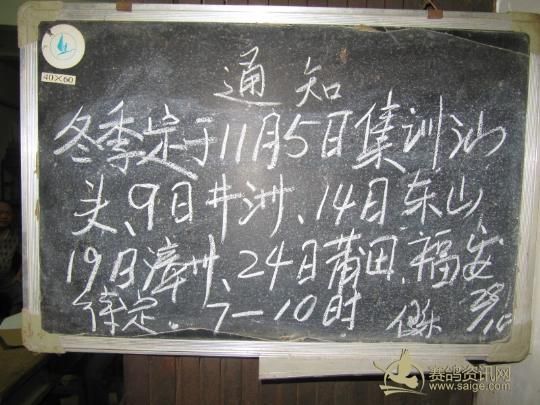 40×60
通知
冬季定于11月5日集训汕
头、9日井洲、14日东山
19日漳州、24日莆田、福安
待定. 7—10时
28/10
赛鸽资讯网
www.saige.com